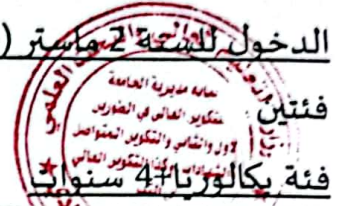 الدخول للسنة 2 ماستر (
فئتين
فئة بكالوريا+4 سنوات
نيابة مديرية الجامعة
للتكوين العالي في الطورين
الأول والثاني والتكوين المتواصل
والشهادات وكذا التكوين العالي